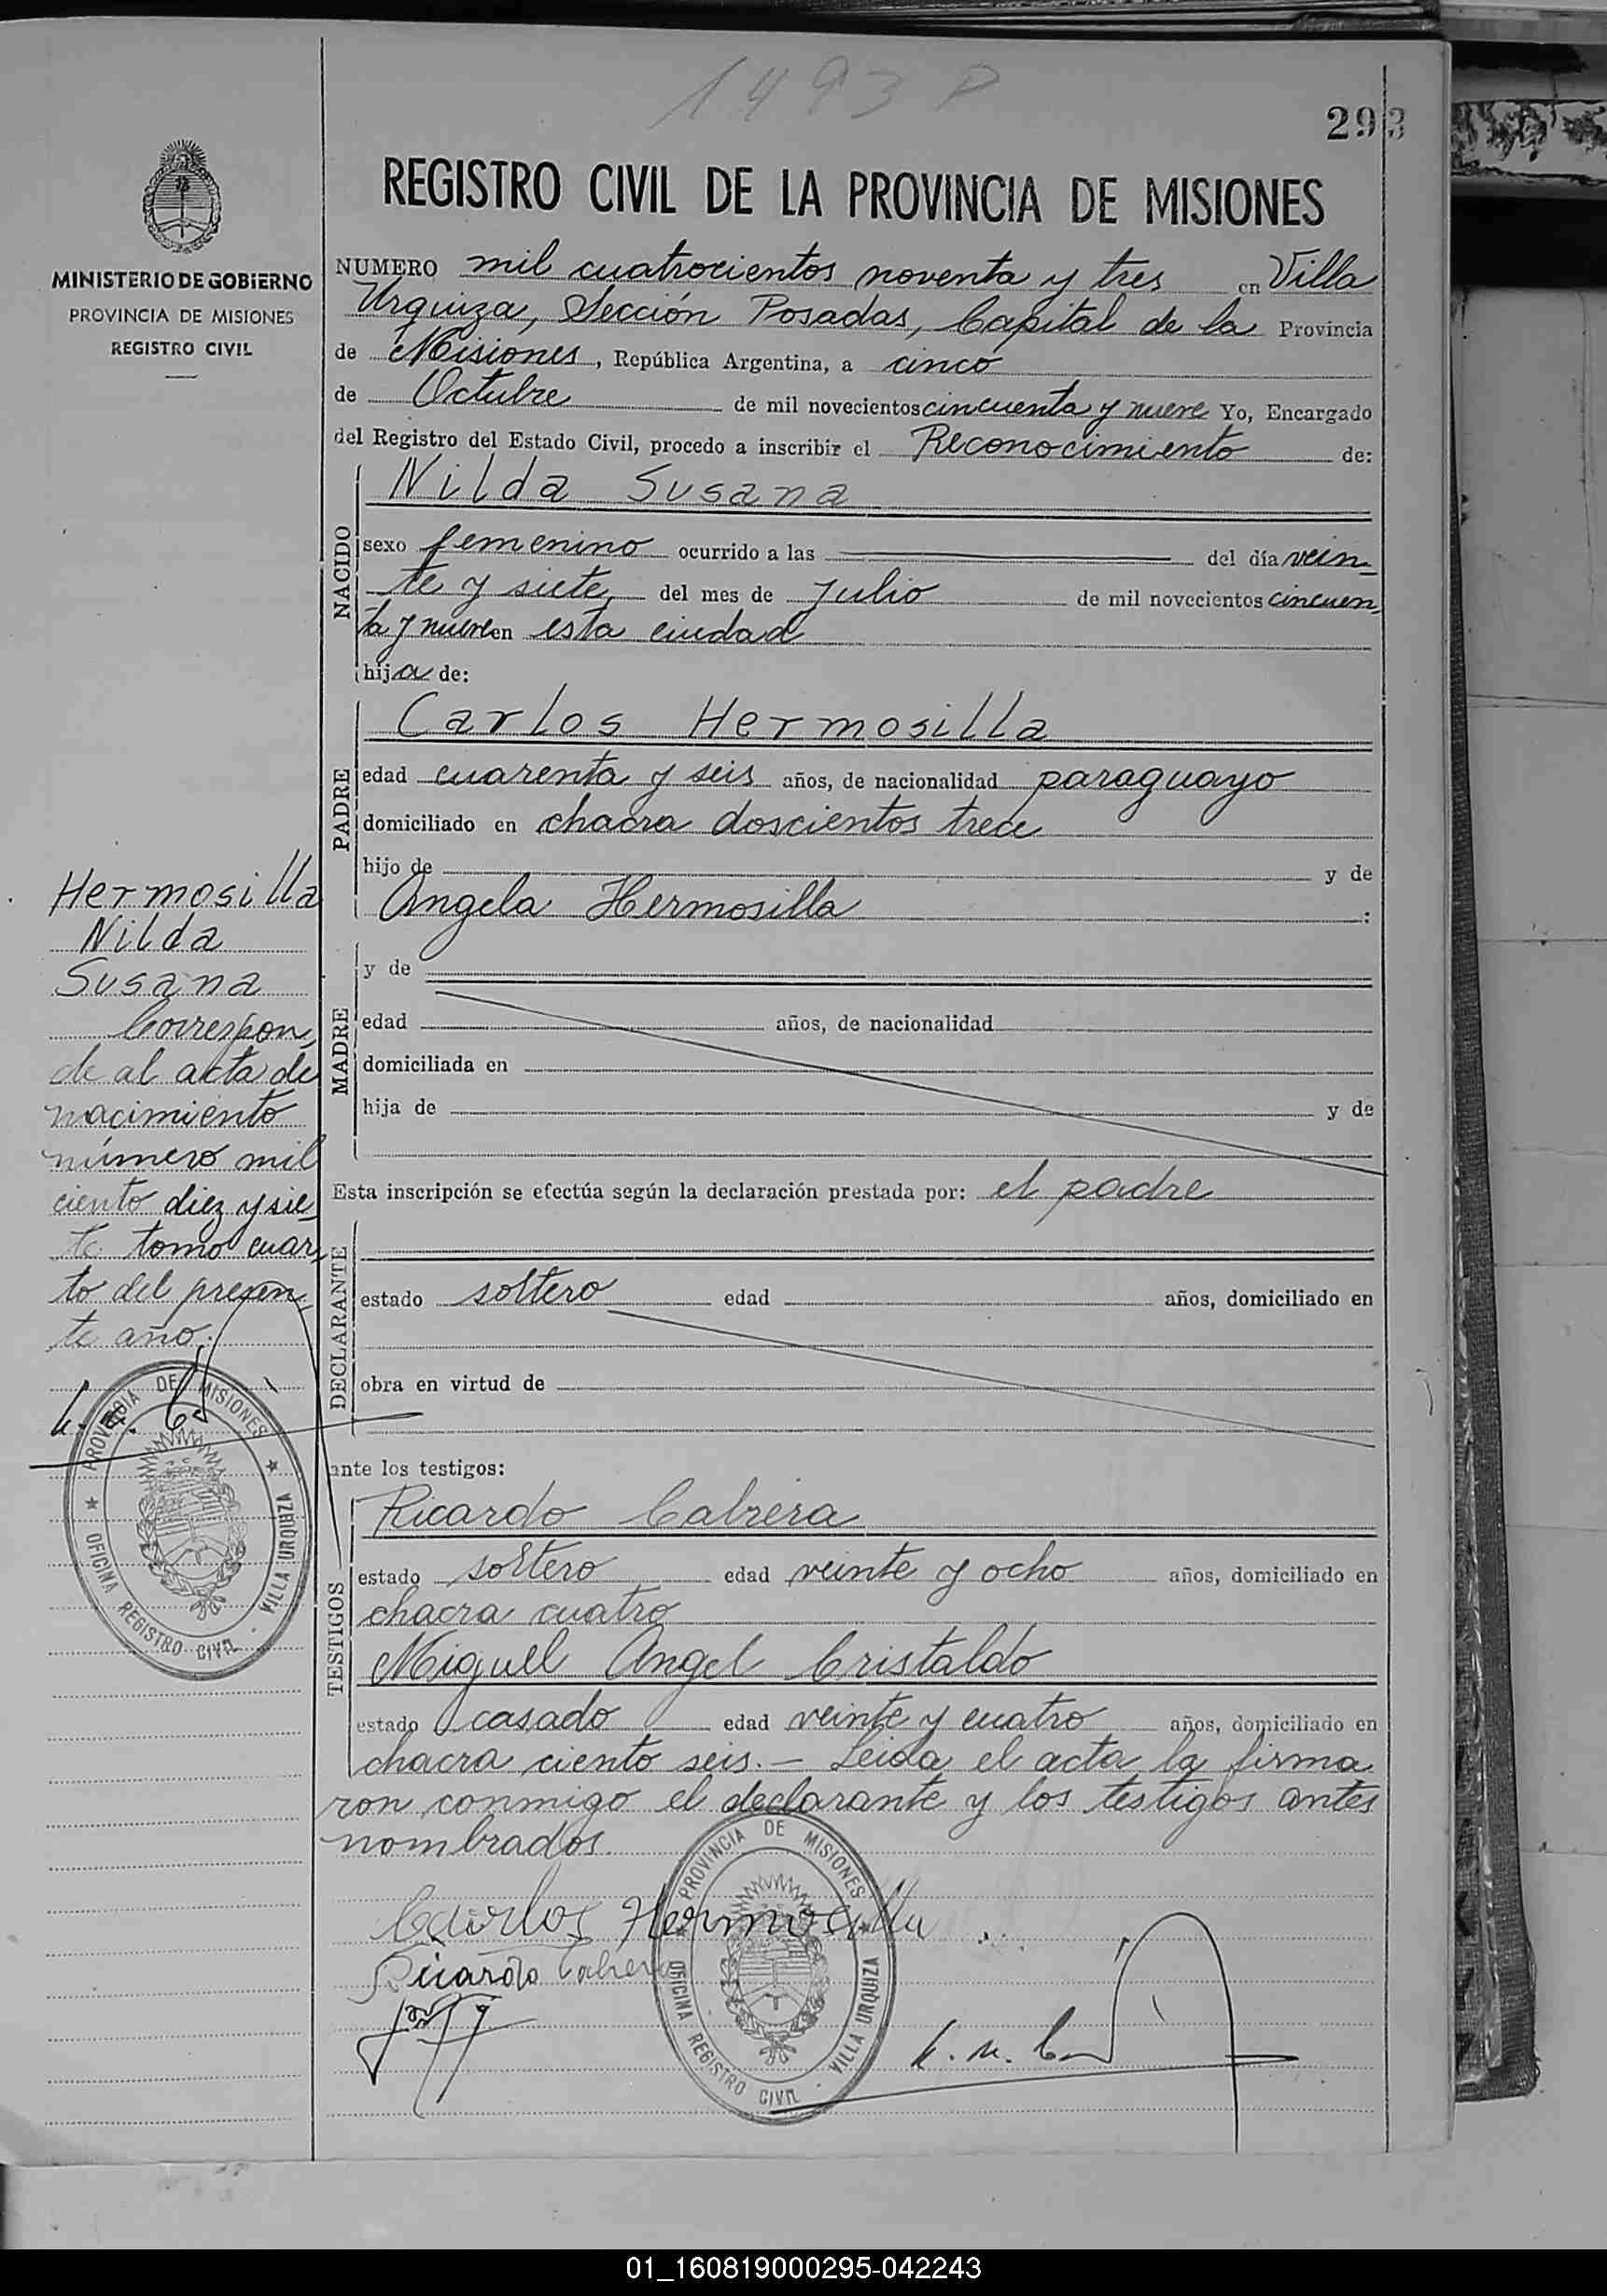 1493 P
293
MINISTERIO DE GOBIERNO
PROVINCIA DE MISIONES
REGISTRO CIVIL
Hermosilla
Nilda
Susana
Correspon
de al acta de
nacimiento
número mil
ciento diez y sie
te tomo cuar
to del presen
te año.
PROVINCIA DE MISIONES
OFICINA REGISTRO CIVIL - VILLA URQUIZA
REGISTRO CIVIL DE LA PROVINCIA DE MISIONES
NUMERO mil cuatrocientos noventa y tres en Villa
Urquiza, Sección Posadas, Capital de la Provincia
de Misiones, República Argentina, a cinco
de Octubre de mil novecientos cincuenta y nueve Yo, Encargado
del Registro del Estado Civil, procedo a inscribir el Reconocimiento de:
NACIDO
Nilda Susana
sexo femenino ocurrido a las del día vein
te y siete del mes de Julio de mil novecientos cincuen
ta y nueve en esta ciudad
hija de:
PADRE
Carlos Hermosilla
edad cuarenta y seis años, de nacionalidad paraguayo
domiciliado en chacra doscientos trece
hijo de y de
Angela Hermosilla :
MADRE
y de
edad años, de nacionalidad
domiciliada en
hija de y de
Esta inscripción se efectúa según la declaración prestada por: el padre
DECLARANTE
estado soltero edad años, domiciliado en
obra en virtud de
ante los testigos:
TESTIGOS
Ricardo Cabrera
estado soltero edad veinte y ocho años, domiciliado en
chacra cuatro
Miguel Angel Cristaldo
estado casado edad veinte y cuatro años, domiciliado en
chacra ciento seis.- Leida el acta la firma
ron conmigo el declarante y los testigos antes
nombrados.
Carlos Hermosilla
Ricardo Cabrera
PROVINCIA DE MISIONES
OFICINA REGISTRO CIVIL - VILLA URQUIZA
01_160819000295-042243